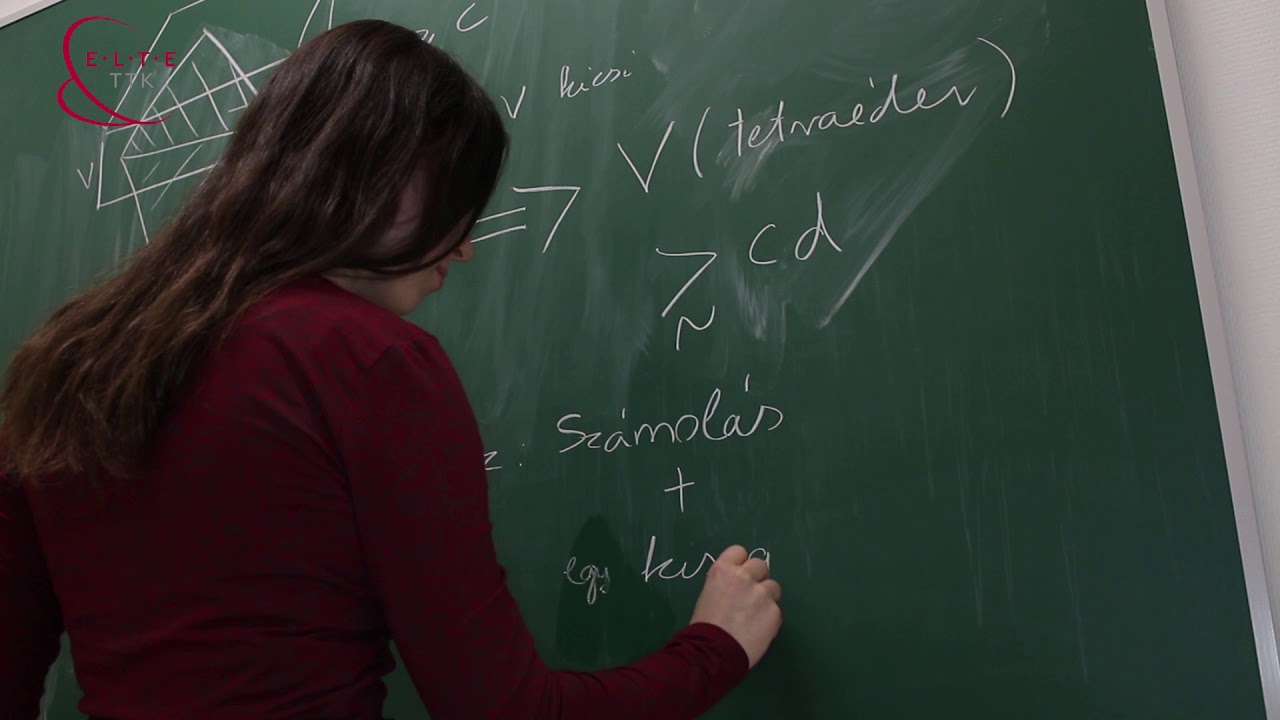 E·L·T·E
TTK
c
v kicsi
V
⇒ V (tetraéder)
≳ cd
z: Számolás
+
egy